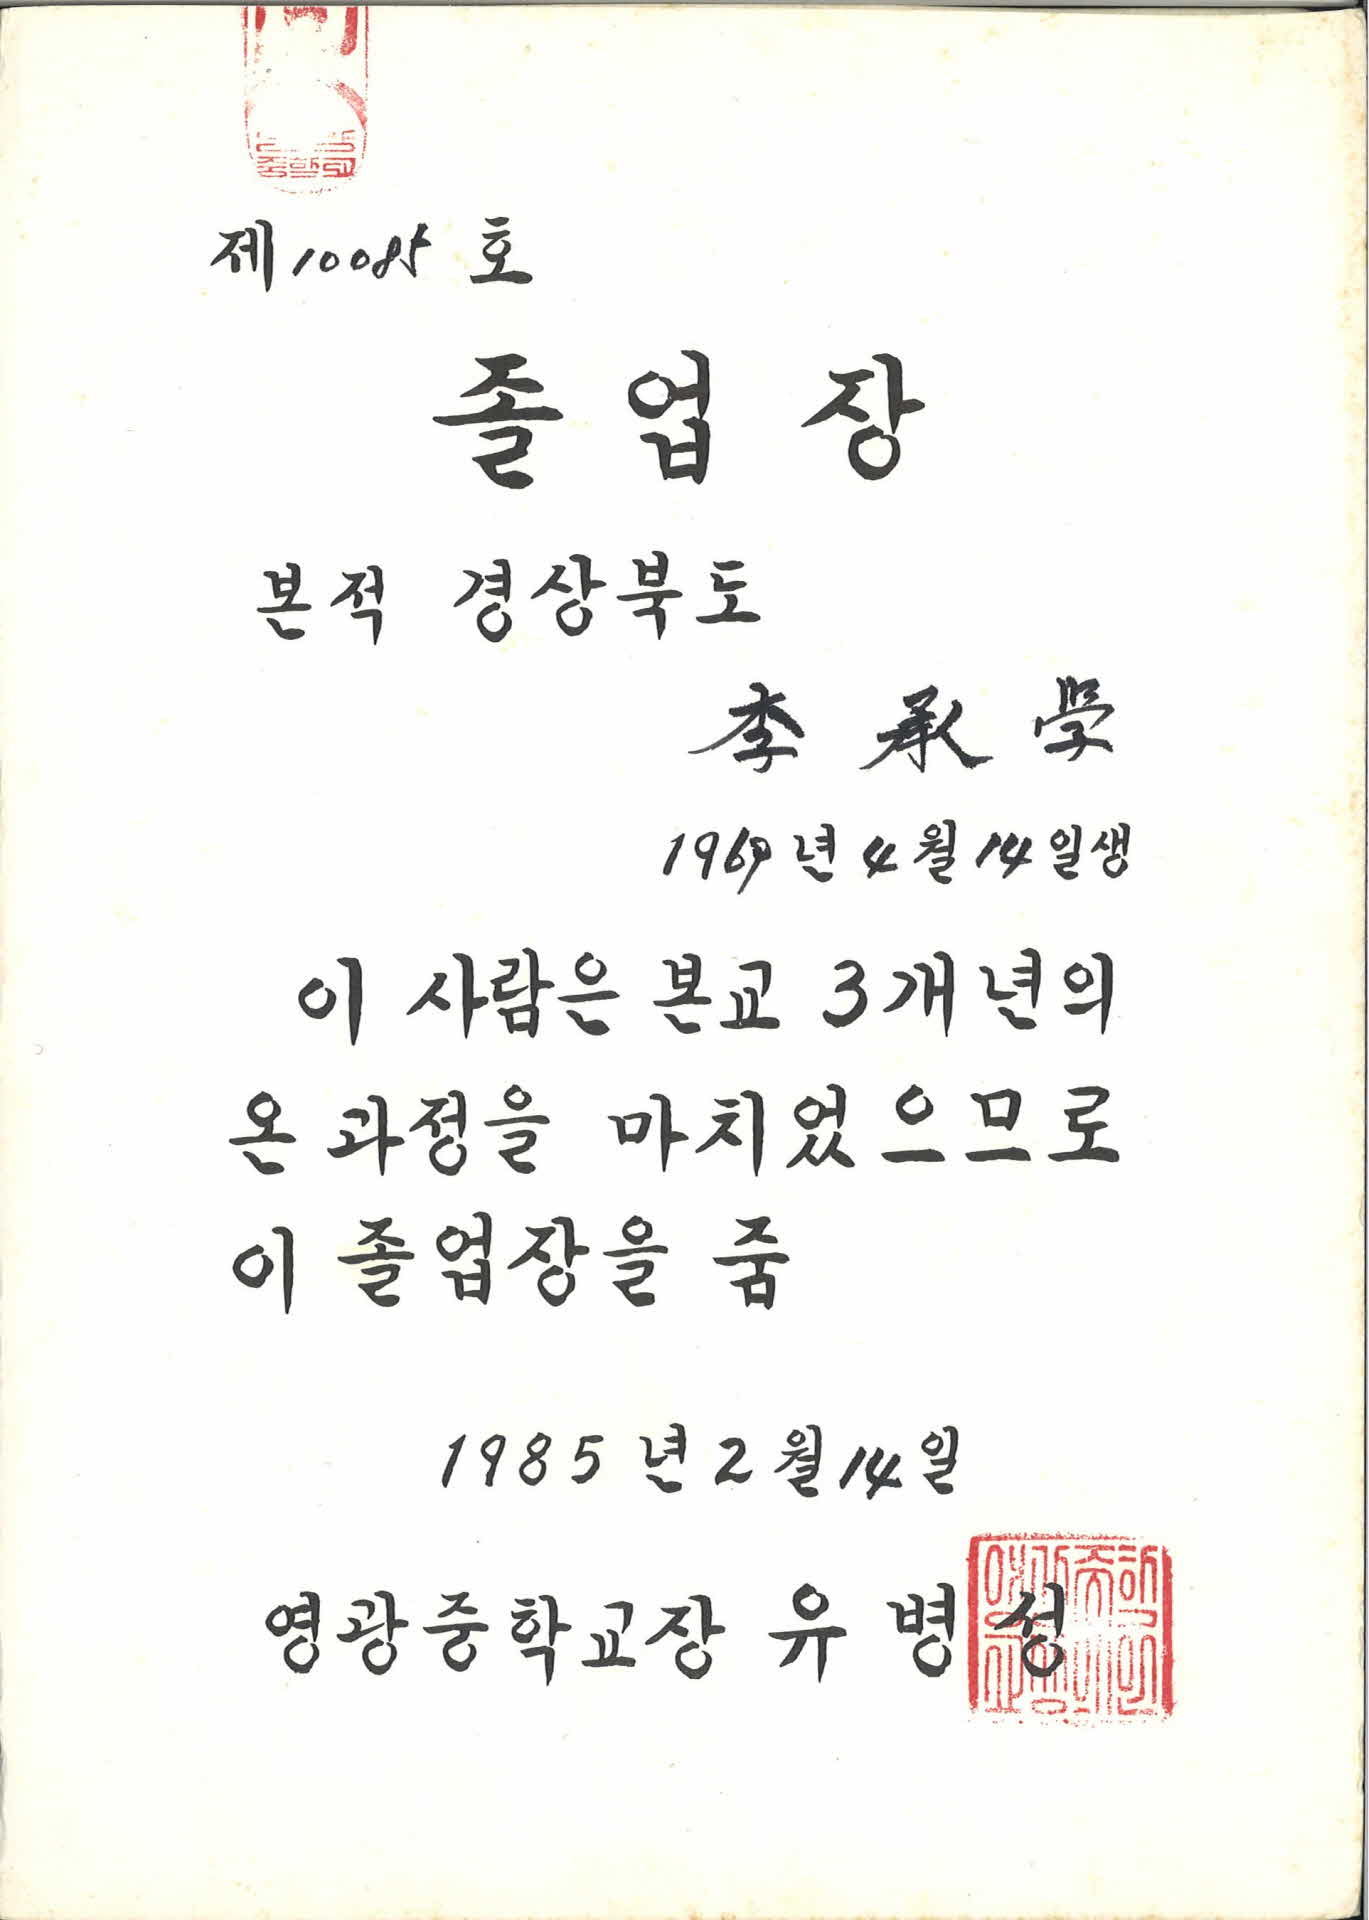 제 10085 호
졸업장
본적 경상북도
李承学
1969년 4월 14일생
이 사람은 본교 3개년의
온 과정을 마치었으므로
이 졸업장을 줌
1985년 2월 14일
영광중학교장 유병성